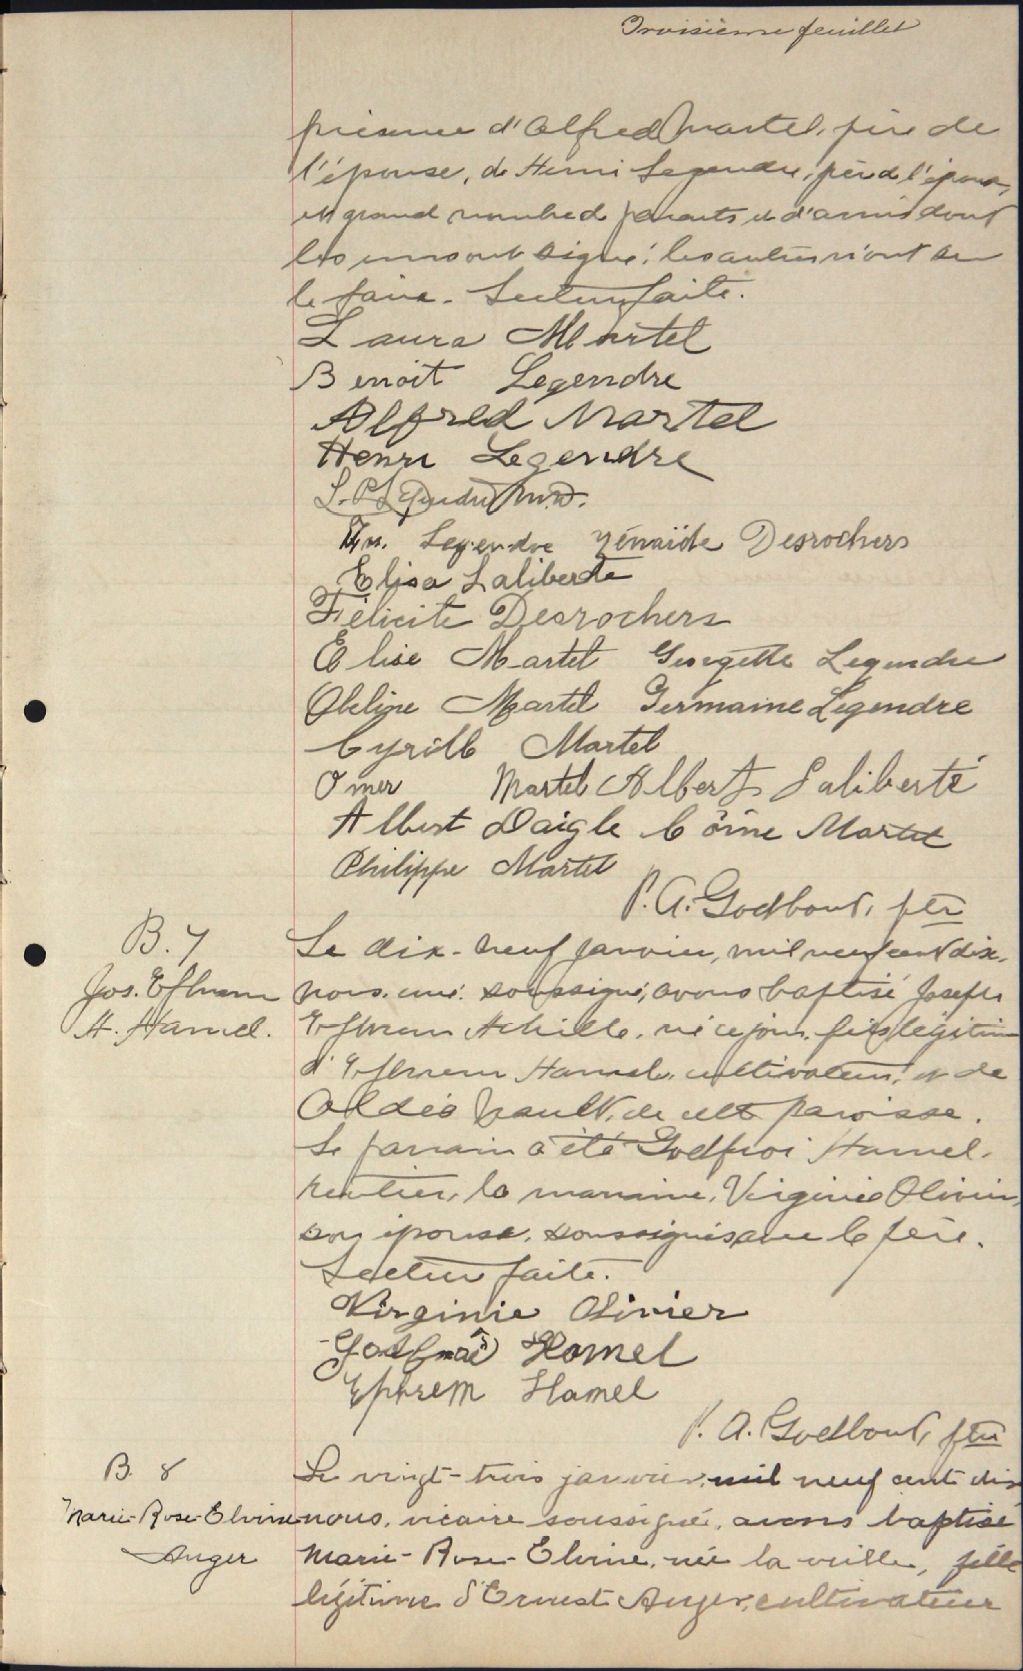 Troisième feuillet
présence d'Alfred Martel, père de
l'épouse, de Henri Legendre, père de l'époux,
et grand nombre de parents et d'amis dont
les uns ont signé; les autres n'ont su
le faire. Lecture faite.
Laura Martel
Benoit Legendre
Alfred Martel
Henri Legendre
L. P. Legendre M.D.
Legendre Zénaïde Desrochers
Elisa Laliberté
Félicité Desrochers
Elise Martel Georgette Legendre
Martel Germaine Legendre
Cyrille Martel
Omer Martel Albert Laliberté
Albert Daigle Côrine Martel
Philippe Martel
P. A. Godbout, ptre
B. 7
Jos. Ephrem
A. Hamel.
Le dix-neuf janvier, mil neuf cent dix,
nous, curé soussigné, avons baptisé Joseph
Ephrem Achille, né ce jour, fils légitime
d'Ephrem Hamel, cultivateur, et de
Aldéa Nault, de cette paroisse.
Le parrain a été Godfroi Hamel,
rentier, la marraine, Virginie Olivier,
son épouse, soussignés avec le père.
Lecture faite.
Virginie Olivier
Godfroi Hamel
Ephrem Hamel
P. A. Godbout, ptre
B. 8
Marie-Rose-Elvine
Auger
Le vingt-trois janvier, mil neuf cent dix
nous, vicaire soussigné, avons baptisé
Marie-Rose-Elvine, née la veille, fille
légitime d'Ernest Auger, cultivateur